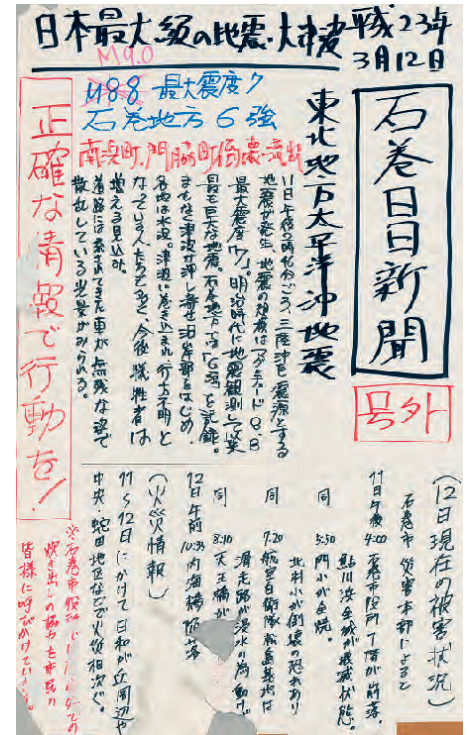 日本最大級の地震・大津波
平成23年
3月12日
石巻日日新聞
号外
M9.0
M8.8 最大震度7
石巻地方6強
南浜町、門脇町倒壊・流出
正確な情報で行動を!
東北地方太平洋沖地震
11日午後2時46分ごろ、三陸沖を震源とする
地震が発生、地震の規模はマグニチュード8.8
最大震度は7。明治時代に地震観測して以来
最も巨大な地震。石巻地方では「6強」を記録。
まもなく津波が押し寄せ沿岸部をはじめ、
各地は水没。津波に巻き込まれ行方不明と
なっている人たちも多く、今後犠牲者は
増える見込み。
道路には流されてきた車が無残な姿で
散乱している光景がみられる。
(12日現在の被害状況)
石巻市災害本部によると
11日午後4:00 石巻市役所1階が冠水。
鮎川浜全域が壊滅状態。
同 5:50 門小が全焼。
北村小が倒壊の恐れあり
同 7:20 航空自衛隊松島基地は
滑走路が浸水の為動けず
同 8:10 天王橋が
12日午前10:35 内海橋
(火災情報)
11〜12日にかけて日和が丘周辺や
中央・蛇田地区などで火災相次ぐ。
※石巻市役所
炊き出しの協力を市民の
皆様に呼びかけている。